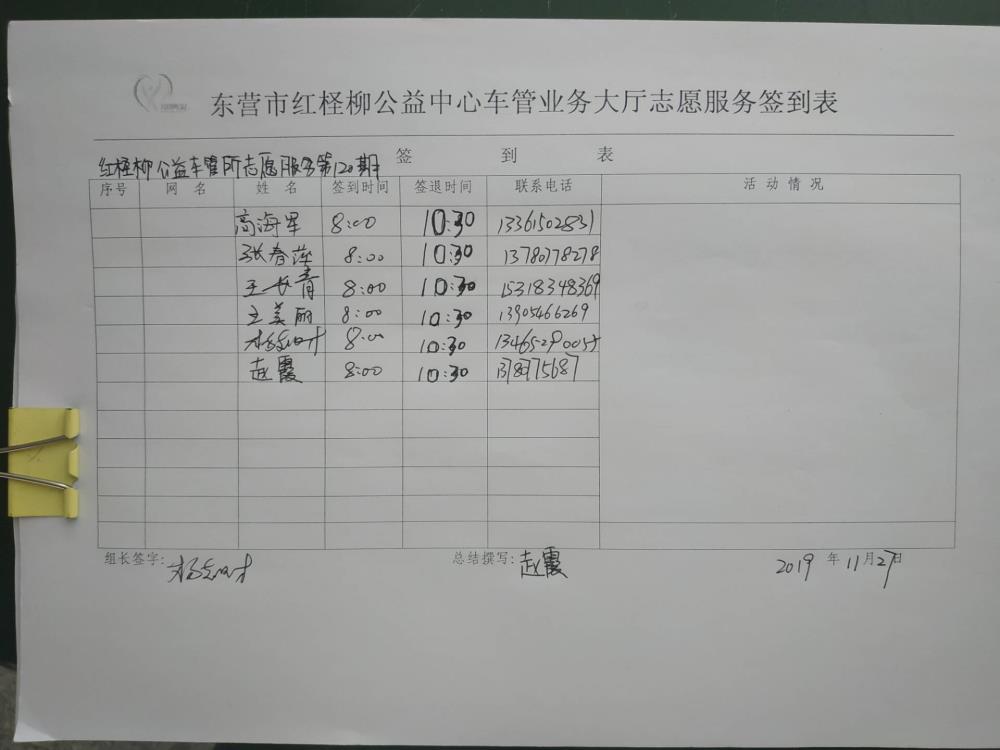 东营市红柽柳公益中心车管业务大厅志愿服务签到表
签 到 表
红柽柳公益车管所志愿服务第120期
序号 网 名 姓 名 签到时间 签退时间 联系电话 活 动 情 况
高海军 8:00 10:30 13361502831
张春萍 8:00 10:30 13780778278
王长青 8:00 10:30 15318348369
王美丽 8:00 10:30 13905466269
8:00 10:30
赵霞 8:00 10:30
组长签字: 总结撰写: 赵霞 2019 年 11 月 27 日